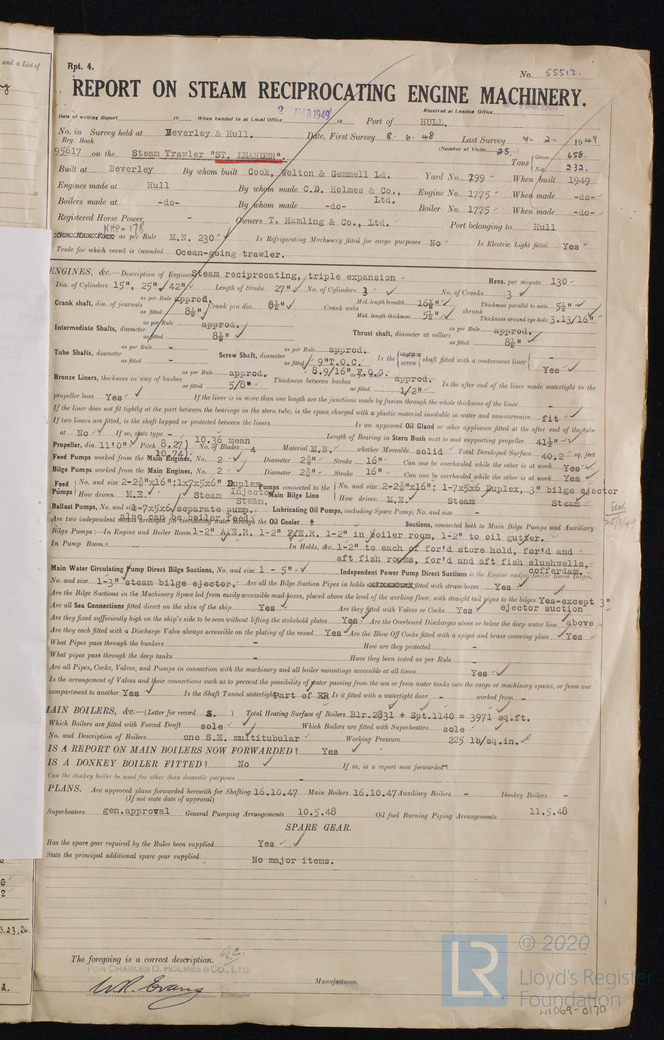 and a List of
Rpt. 4.
No. 55512.
REPORT ON STEAM RECIPROCATING ENGINE MACHINERY.
Received at London Office
Date of writing Report 19 When handed in at Local Office 2 MAR 1949 19 Port of HULL.
No. in Survey held at Beverley & Hull. Date, First Survey 8. 6. 48 Last Survey 4- 2- 1949
Reg. Book (Number of Visits 25.)
95617 on the Steam Trawler "ST. LEANDER". Tons Gross 658. Net 232.
Built at Beverley By whom built Cook, Welton & Gemmell Ld. Yard No. 799 When built 1949
Engines made at Hull By whom made C.D. Holmes & Co., Ltd. Engine No. 1775 When made -do-
Boilers made at -do- By whom made -do- Boiler No. 1775 When made -do-
Registered Horse Power - Owners T. Hamling & Co., Ltd. Port belonging to Hull
NHP-178
as per Rule M.N. 230 Is Refrigerating Machinery fitted for cargo purposes No Is Electric Light fitted Yes
Trade for which vessel is intended Ocean-going trawler.
ENGINES, &c.—Description of Engines Steam reciprocating, triple expansion Revs. per minute 130
Dia. of Cylinders 15", 25", 42" Length of Stroke 27" No. of Cylinders 3 No. of Cranks 3
Crank shaft, dia. of journals as per Rule approd. as fitted 8½" Crank pin dia. 8½" Crank webs Mid. length breadth 16½" Mid. length thickness 5½" shrunk Thickness parallel to axis 5½" Thickness around eye-hole 3.13/16"
Intermediate Shafts, diameter as per Rule approd. as fitted 8½" Thrust shaft, diameter at collars as per Rule approd. as fitted 8½"
Tube Shafts, diameter as per Rule - as fitted - Screw Shaft, diameter as per Rule approd. as fitted 9"T.O.C. 8.9/16" F.O.G. Is the screw shaft fitted with a continuous liner Yes
Bronze Liners, thickness in way of bushes as per Rule approd. as fitted 5/8" Thickness between bushes as per Rule approd. as fitted 1/2" Is the after end of the liner made watertight in the
propeller boss Yes If the liner is in more than one length are the junctions made by fusion through the whole thickness of the liner -
If the liner does not fit tightly at the part between the bearings in the stern tube, is the space charged with a plastic material insoluble in water and non-corrosive fit
If two liners are fitted, is the shaft lapped or protected between the liners - Is an approved Oil Gland or other appliance fitted at the after end of the tube
at No If so, state type - Length of Bearing in Stern Bush next to and supporting propeller 41½"
Propeller, dia. 11'0" Pitch 8.27) 10.74) 10.36 mean No. of Blades 4 Material M.B. whether Moveable solid Total Developed Surface 40.2 sq. feet
Feed Pumps worked from the Main Engines, No. 2 Diameter 2½" Stroke 16" Can one be overhauled while the other is at work Yes
Bilge Pumps worked from the Main Engines, No. 2 Diameter 2½" Stroke 16" Can one be overhauled while the other is at work Yes
Feed Pumps No. and size 2-2½"x16": 1x7x5x6 Duplex Injector Pumps connected to the Main Bilge Line No. and size 2-2½"x16": 1-7x5x6 Duplex, 3" bilge ejector
How driven M.E. Steam Steam. How driven M.E. Steam Steam
Ballast Pumps, No. and size 1-7x5x6 separate pump. Lubricating Oil Pumps, including Spare Pump, No. and size -
Suctions, connected both to Main Bilge Pumps and Auxiliary
Bilge Pumps:—In Engine and Boiler Room 1-2" A.E.R. 1-2" F.E.R. 1-2" in boiler room, 1-2" to oil gutter.
In Pump Room - In Holds, &c. 1-2" to each of for'd store hold, for'd and
aft fish rooms, for'd and aft fish slushwells,
cofferdam.
Main Water Circulating Pump Direct Bilge Suctions, No. and size 1 - 5" Independent Power Pump Direct Suctions to the Engine and/or Boiler Room Bilges,
No. and size 1-3" steam bilge ejector. Are all the Bilge Suction Pipes in holds fitted with strum-boxes Yes
Are the Bilge Suctions in the Machinery Space led from easily accessible mud-boxes, placed above the level of the working floor, with straight tail pipes to the bilges Yes-except 3"
ejector suction
Are all Sea Connections fitted direct on the skin of the ship Yes Are they fitted with Valves or Cocks Yes
Are they fixed sufficiently high on the ship's side to be seen without lifting the stokehold plates Yes Are the Overboard Discharges above or below the deep water line above
Are they each fitted with a Discharge Valve always accessible on the plating of the vessel Yes Are the Blow Off Cocks fitted with a spigot and brass covering plate Yes
What Pipes pass through the bunkers - How are they protected -
What pipes pass through the deep tanks - Have they been tested as per Rule -
Are all Pipes, Cocks, Valves, and Pumps in connection with the machinery and all boiler mountings accessible at all times Yes
Is the arrangement of Valves and their connections such as to prevent the possibility of water passing from the sea or from water tanks into the cargo or machinery spaces, or from one
compartment to another Yes Is the Shaft Tunnel watertight Part of ER Is it fitted with a watertight door - worked from -
MAIN BOILERS, &c.—(Letter for record S. ) Total Heating Surface of Boilers Blr.2831 + Spt.1140 = 3971 sq.ft.
Which Boilers are fitted with Forced Draft sole Which Boilers are fitted with Superheaters sole
No. and Description of Boilers one S.E. multitubular Working Pressure 225 lb/sq.in.
IS A REPORT ON MAIN BOILERS NOW FORWARDED? Yes
IS A DONKEY BOILER FITTED? No If so, is a report now forwarded?
Can the donkey boiler be used for other than domestic purposes -
PLANS. Are approved plans forwarded herewith for Shafting 16.10.47 Main Boilers 16.10.47 Auxiliary Boilers - Donkey Boilers -
(If not state date of approval)
Superheaters gen.approval General Pumping Arrangements 10.5.48 Oil fuel Burning Piping Arrangements 11.5.48
SPARE GEAR.
Has the spare gear required by the Rules been supplied Yes
State the principal additional spare gear supplied No major items.
The foregoing is a correct description.
FOR CHARLES D. HOLMES & CO., LTD.
W.R. Evans Manufacturer.
© 2020
LR
Lloyd's Register
Foundation
W1069-0170